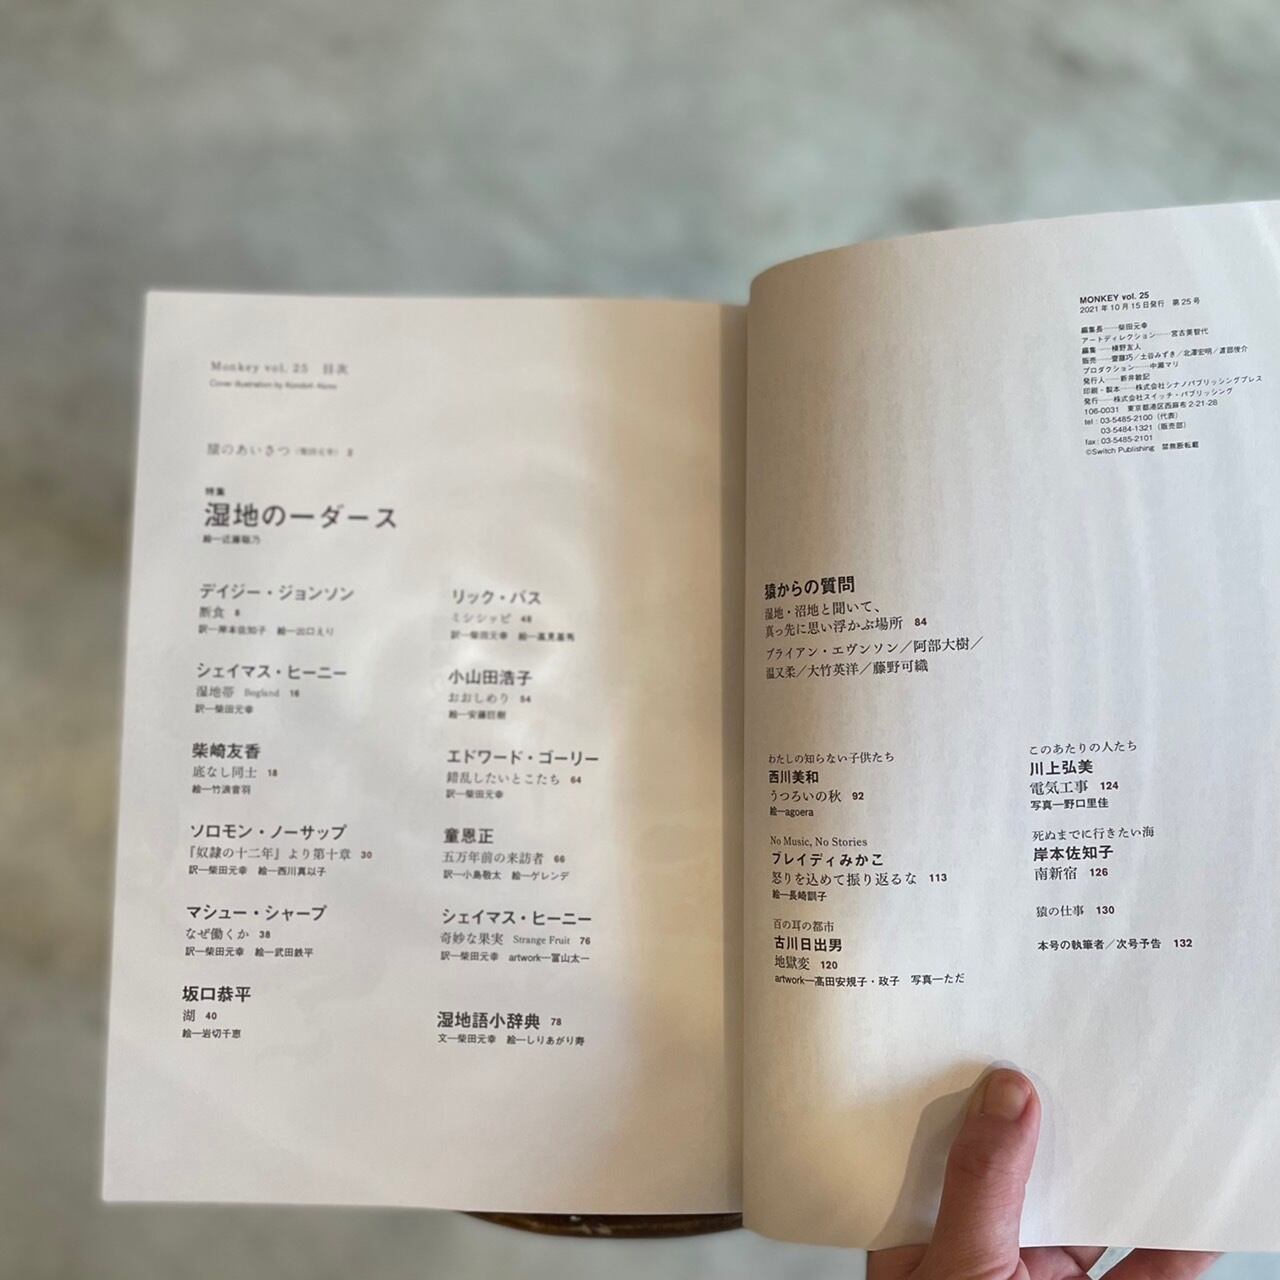 Monkey vol. 25 目次
Cover illustration by Kondoh Akino
猿のあいさつ（柴田元幸） 2
特集
湿地の一ダース
絵―近藤聡乃
デイジー・ジョンソン
断食 8
訳―岸本佐知子 絵―出口えり
シェイマス・ヒーニー
湿地帯 Bogland 16
訳―柴田元幸
柴崎友香
底なし同士 18
絵―竹浪音羽
ソロモン・ノーサップ
『奴隷の十二年』より第十章 30
訳―柴田元幸 絵―西川真以子
マシュー・シャープ
なぜ働くか 38
訳―柴田元幸 絵―武田鉄平
坂口恭平
湖 40
絵―岩切千恵
リック・バス
ミシシッピ 48
訳―柴田元幸 絵―高見基秀
小山田浩子
おおしめり 54
絵―安藤巨樹
エドワード・ゴーリー
錯乱したいとこたち 64
訳―柴田元幸
童恩正
五万年前の来訪者 66
訳―小島敬太 絵―ゲレンデ
シェイマス・ヒーニー
奇妙な果実 Strange Fruit 76
訳―柴田元幸 artwork―冨山太一
湿地語小辞典 78
文―柴田元幸 絵―しりあがり寿
MONKEY vol. 25
2021年10月15日発行 第25号
編集長――柴田元幸
アートディレクション――宮古美智代
編集――槙野友人
販売――齋藤巧／土谷みずき／北澤宏明／渡部俊介
プロダクション――中瀬マリ
発行人――新井敏記
印刷・製本――株式会社シナノパブリッシングプレス
発行――株式会社スイッチ・パブリッシング
106-0031 東京都港区西麻布2-21-28
tel : 03-5485-2100（代表）
03-5484-1321（販売部）
fax : 03-5485-2101
©Switch Publishing 禁無断転載
猿からの質問
湿地・沼地と聞いて、
真っ先に思い浮かぶ場所 84
ブライアン・エヴンソン／阿部大樹／
温又柔／大竹英洋／藤野可織
わたしの知らない子供たち
西川美和
うつろいの秋 92
絵―agoera
No Music, No Stories
ブレイディみかこ
怒りを込めて振り返るな 113
絵―長崎訓子
百の耳の都市
古川日出男
地獄変 120
artwork―髙田安規子・政子 写真―ただ
このあたりの人たち
川上弘美
電気工事 124
写真―野口里佳
死ぬまでに行きたい海
岸本佐知子
南新宿 126
猿の仕事 130
本号の執筆者／次号予告 132